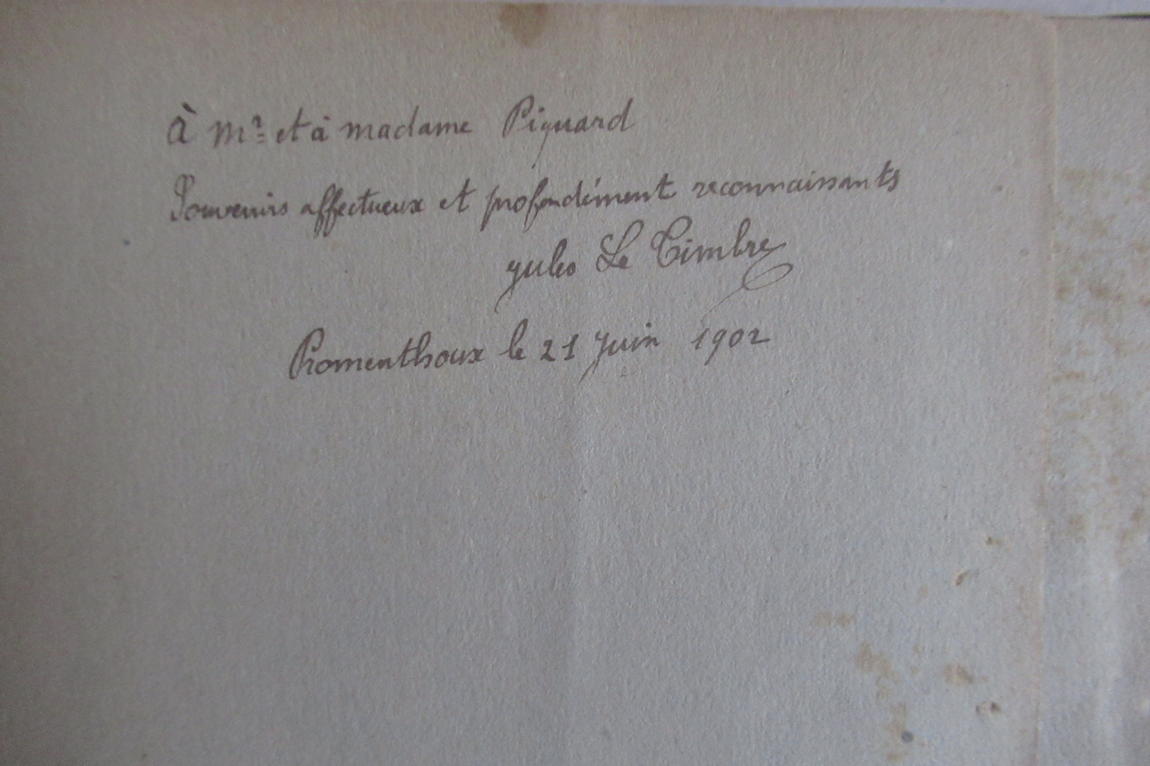 À Mr. et à madame Piquard
Souvenirs affectueux et profondément reconnaissants
Jules Le Timbre
Promenthoux le 21 Juin 1902